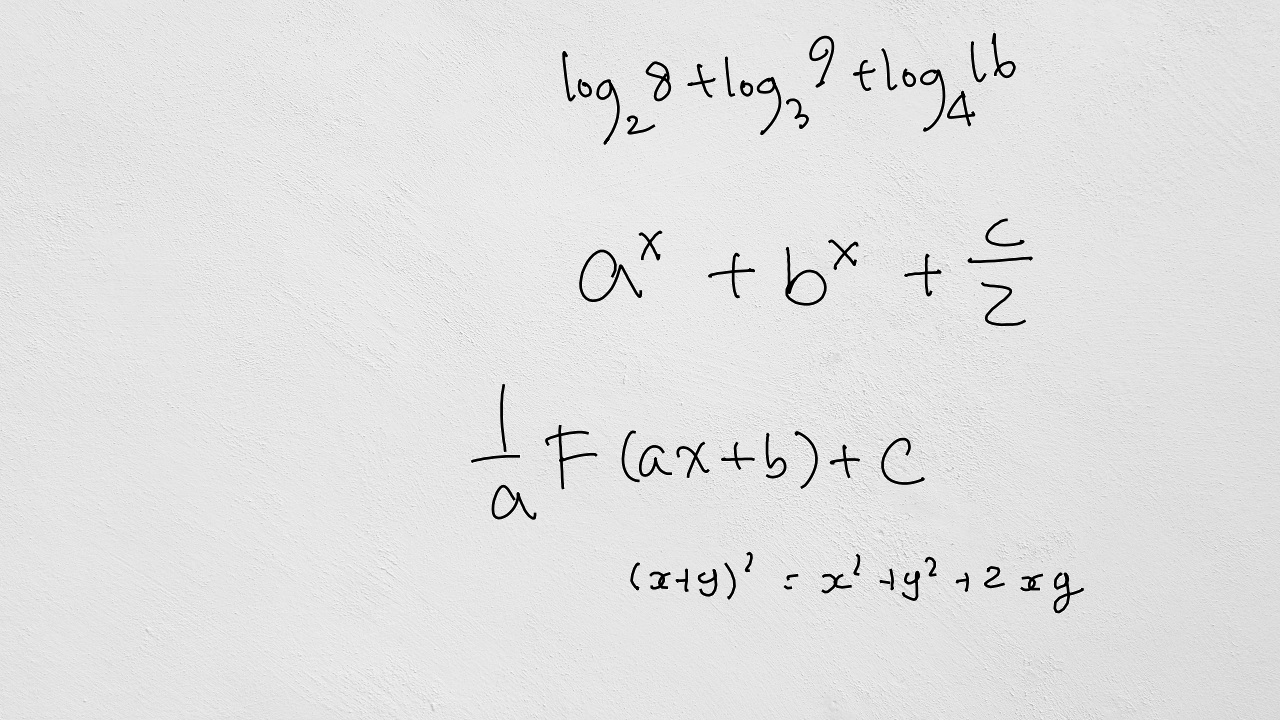 log₂ 8 + log₃ 9 + log₄ 16
aˣ + bˣ + c/2
1/a F (ax + b) + C
(x+y)² = x² + y² + 2xy